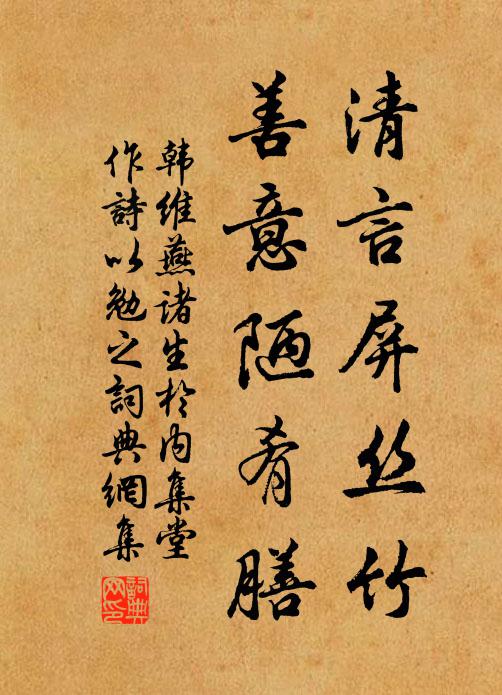 清言屏丝竹
善意陋肴膳
韩维燕诸生於内集堂
作詩以勉之詞典網集
詞典网印